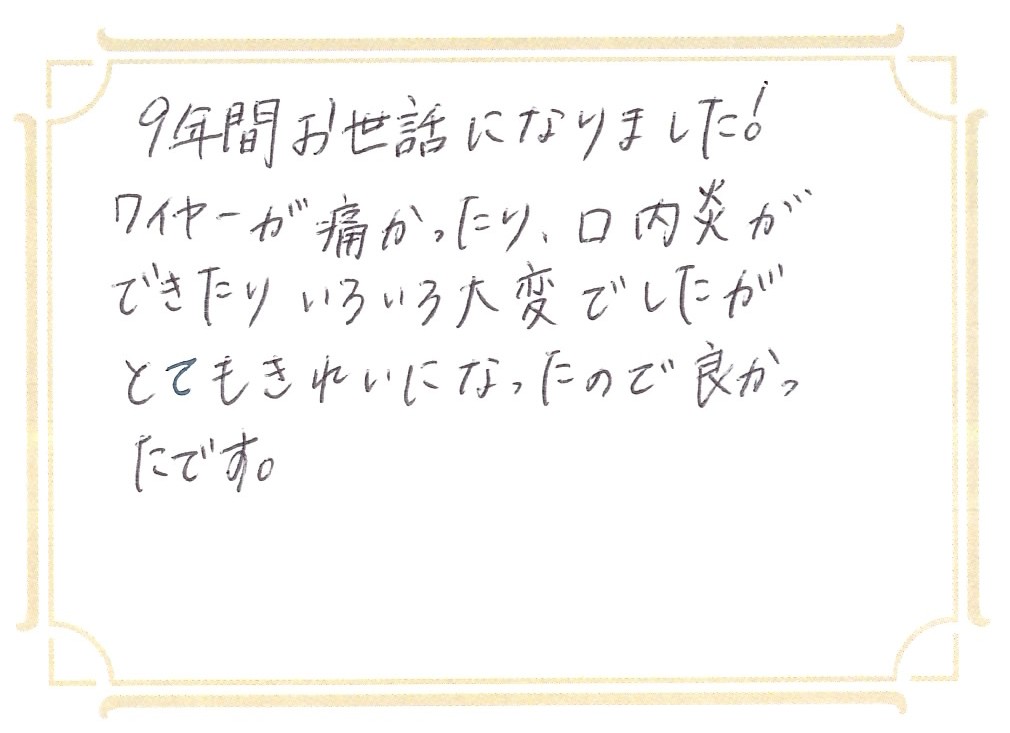 9年間お世話になりました!
ワイヤーが痛かったり、口内炎が
できたりいろいろ大変でしたが
とてもきれいになったので良かっ
たです。